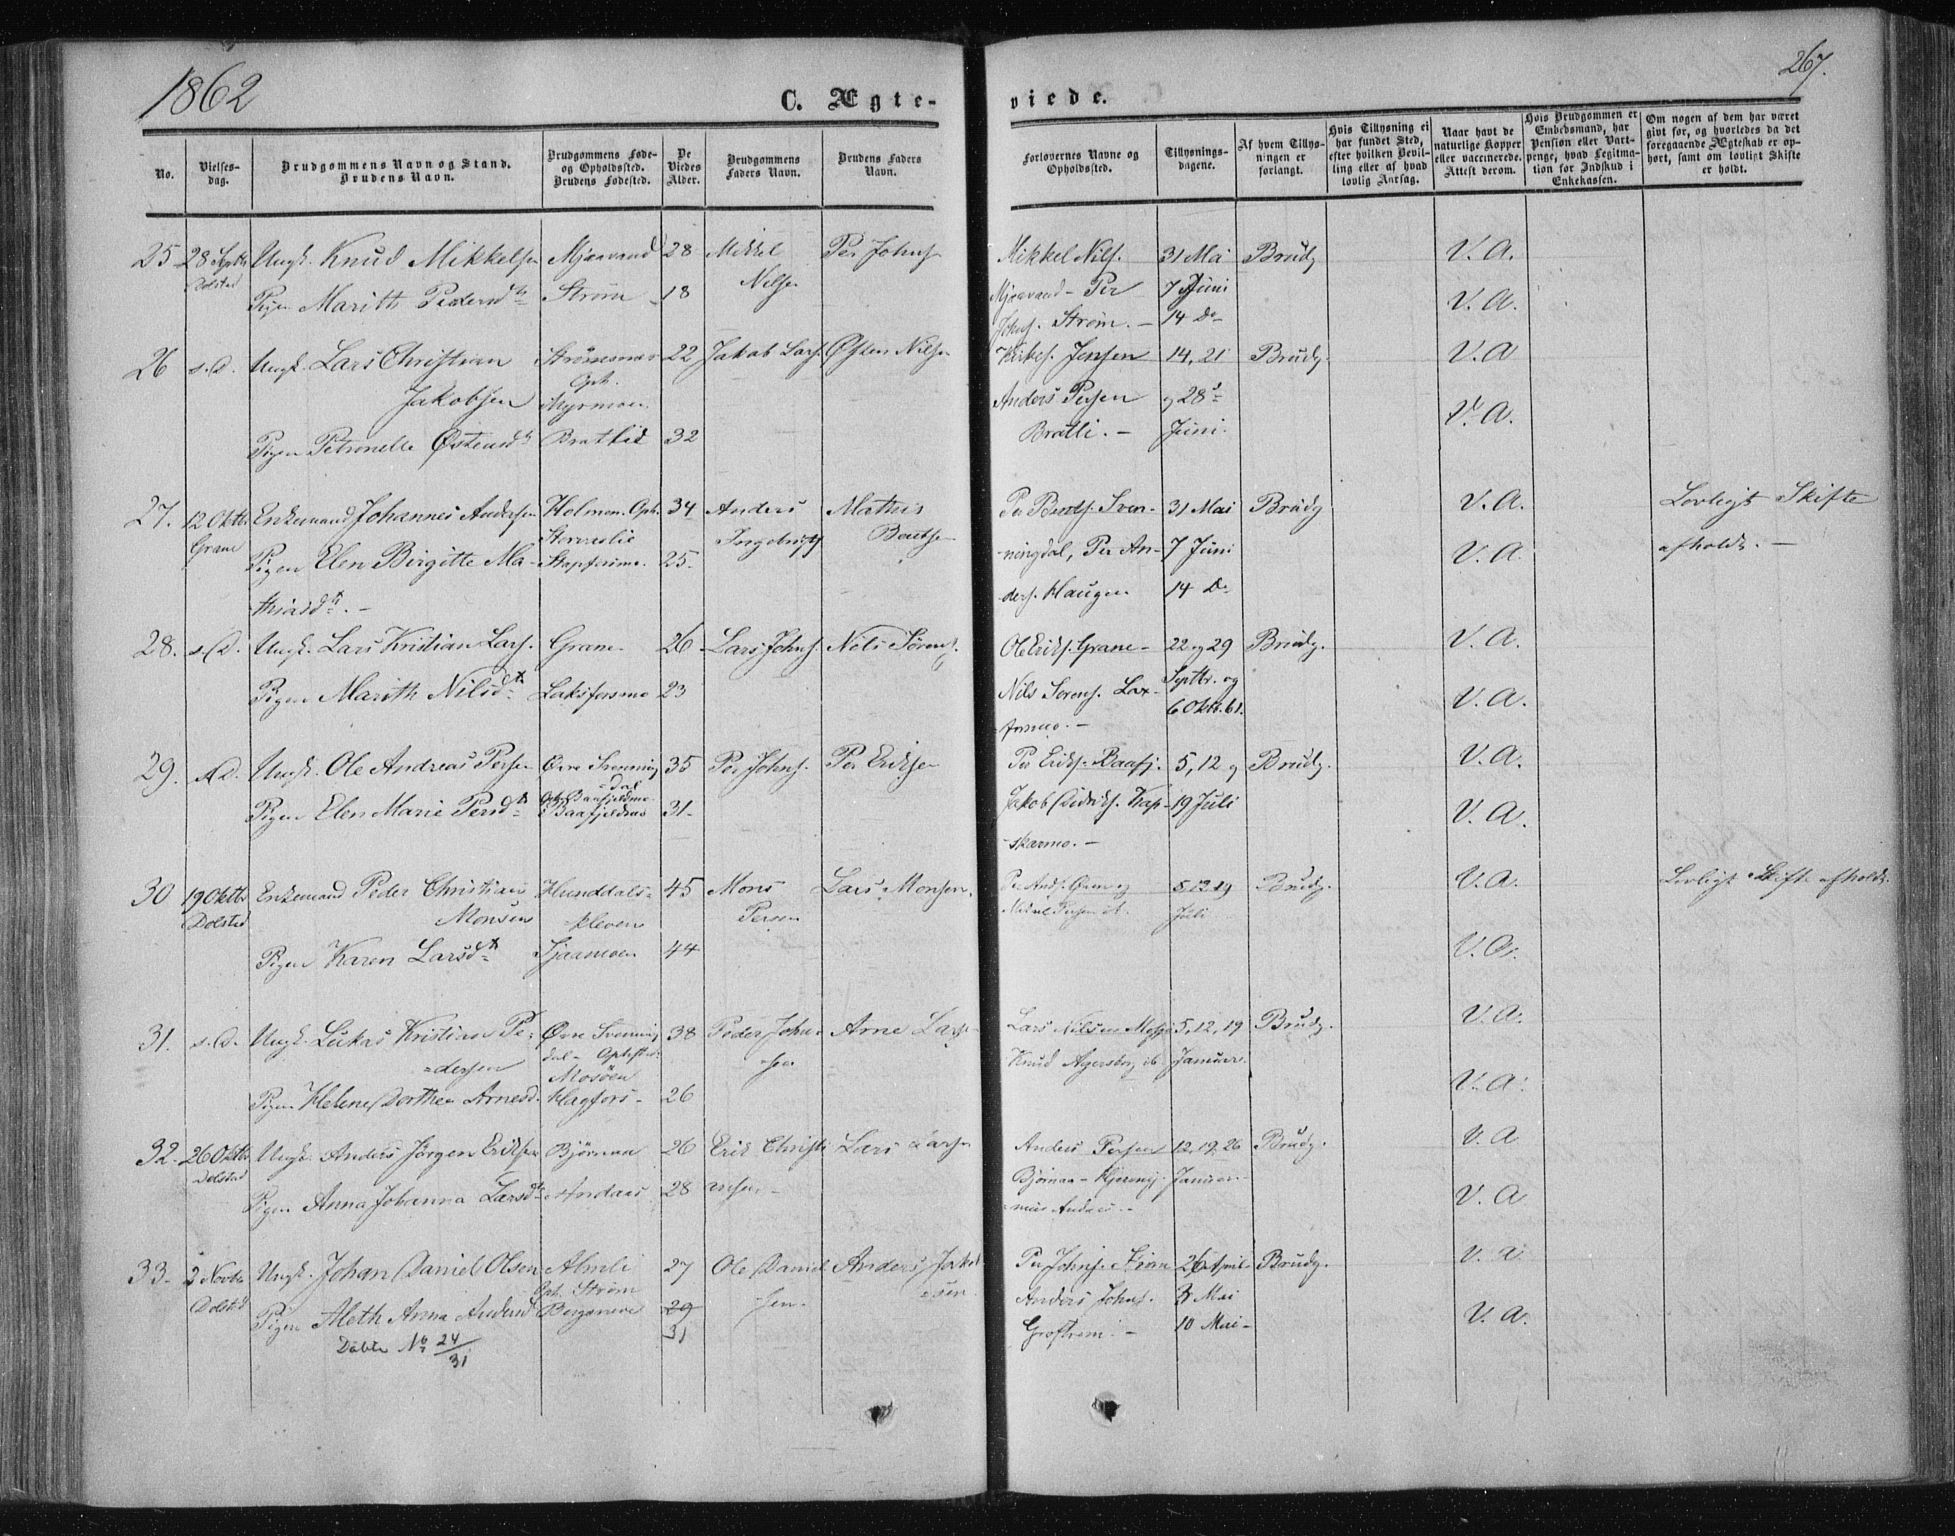 1862
267.
C. Ægteviede.
No.
Vielsesdag.
Brudgommens Navn og Stand. Brudens Navn.
Brudgommens Føde- og Opholdssted. Brudens Fødested.
De Viedes Alder.
Brudgommens Faders Navn.
Brudens Faders Navn.
Forlovernes Navne og Opholdssted.
Tillysningsdagene.
Af hvem Tillysningen er forlangt.
Hvis Tillysning ei har fundet Sted, efter hvilken Bevilling eller af hvad lovlig Aarsag.
Naar havt de naturlige Kopper eller vaccinerede. Attest derom.
Hvis Brudgommen er Embedsmand, har Pension eller Vartpenge, hvad Legitimation for Indskud i Enkekassen.
Om nogen af dem har været gift før, og hvorledes da det foregaaende Ægteskab er ophørt, samt om lovligt Skifte er holdt.
25 28 Septbr Ungk. Knud Mikkelsen Mjaavand 28 Mikkel Per Johns. Mikkel Nils. 31 Mai Brudg V. A.
Dolstad Pigen Marith Pedersdt Strøm 18 Nilsen Mjaavand - Per 7 Juni V. A.
Johns. Strøm. - 14 Do
26 s. D. Ungk. Lars Christian Strømsnæs 22 Jakob Lars. Østen Nilsen Jensen 14, 21 Brudg. V. A
Jakobsen Oph. Myrmoen Anders Persen og 28de V. A.
Pigen Petronelle Østensdt Bratlid 32 Bratli. - Juni.
27. 12 Oktbr. Enkemand Johannes Andersen Holmen. Oph. 34 Anders Mathis Per Bents. Sven- 31 Mai Brudg V. A. Lovligt Skifte
Grane Storveslie Ingebrigts. Bentsen ningdal, Per An- 7 Juni afholdt. -
Pigen Elen Birgitte Ma- Stapforsmo. 25. V. A.
thiasdt. - ders. Haugen 14 Do
28. s. D. Ungk. Lars Kristian Lars. Grane 26 Lars Johns. Nils Sørens. Ole Eriks. Grane - 22 og 29 Brudg. V. A.
Pigen Marith Nilsdt Laksforsmo 23 Nils Sørens. Lax- Septbr. og V. A.
forsmo. - 6 Oktb. 61.
29. s. D. Ungk. Ole Andreas Persen Øvre Svenning- 35 Per Johns. Per Eriksen Per Eriks. Baafj. 5, 12 og Brudg. V. A.
dal
Oph. Baafjeldmo
Pigen Elen Marie Persdt Baafjeldmo 31. Jakob Didriks. Kap- 19 Juli V. A.
skarmo. -
30 19 Oktbr Enkemand Peder Christian Hunddals- 45 Mons Lars Monsen. Per Ands. og 5, 12, 19 Brudg. V. A. Lovligt Skifte afholdt.
Dolstad Monsen kleven Persen Mikkel Persen ib. Juli
Pigen Karen Larsdt Sjaamoen 44 V. A.
31. s. D. Ungk. Lukas Kristian Pe- Øvre Svenning 38 Peder John- Arne Larsen Lars Nilsen 5, 12, 19 Brudg. V. A.
dersen dal - Opholdst. sen Knud Agersborg ib. Januar.
Mosøen
Pigen Helene Dorthea Arnesd. Hagfors - 26 V. A.
32. 26 Oktbr Ungk. Anders Jørgen Eriksen Bjørnaa 26 Erik Christi- Lars Larsen Anders Persen 12, 19, 26 Brudg. V. A
Dolstad Pigen Anna Johanna Larsdt Andaas 28 ansen. - Bjørnaa - Hjerony- Januar - V. A
mus Andaas. -
33. 2 Novbr Ungk. Johan Daniel Olsen Almli 27 Ole Daniel- Anders Jakob- Per Johns. Strøm 26 April Brudg. V. A
Oph. Strøm
Dolstad Pigen Aleth Anna Andersd Berganeve 29 sen. sen. Anders Johns. 3 Mai V. A.
Døbte No 24/31 31 10 Mai -